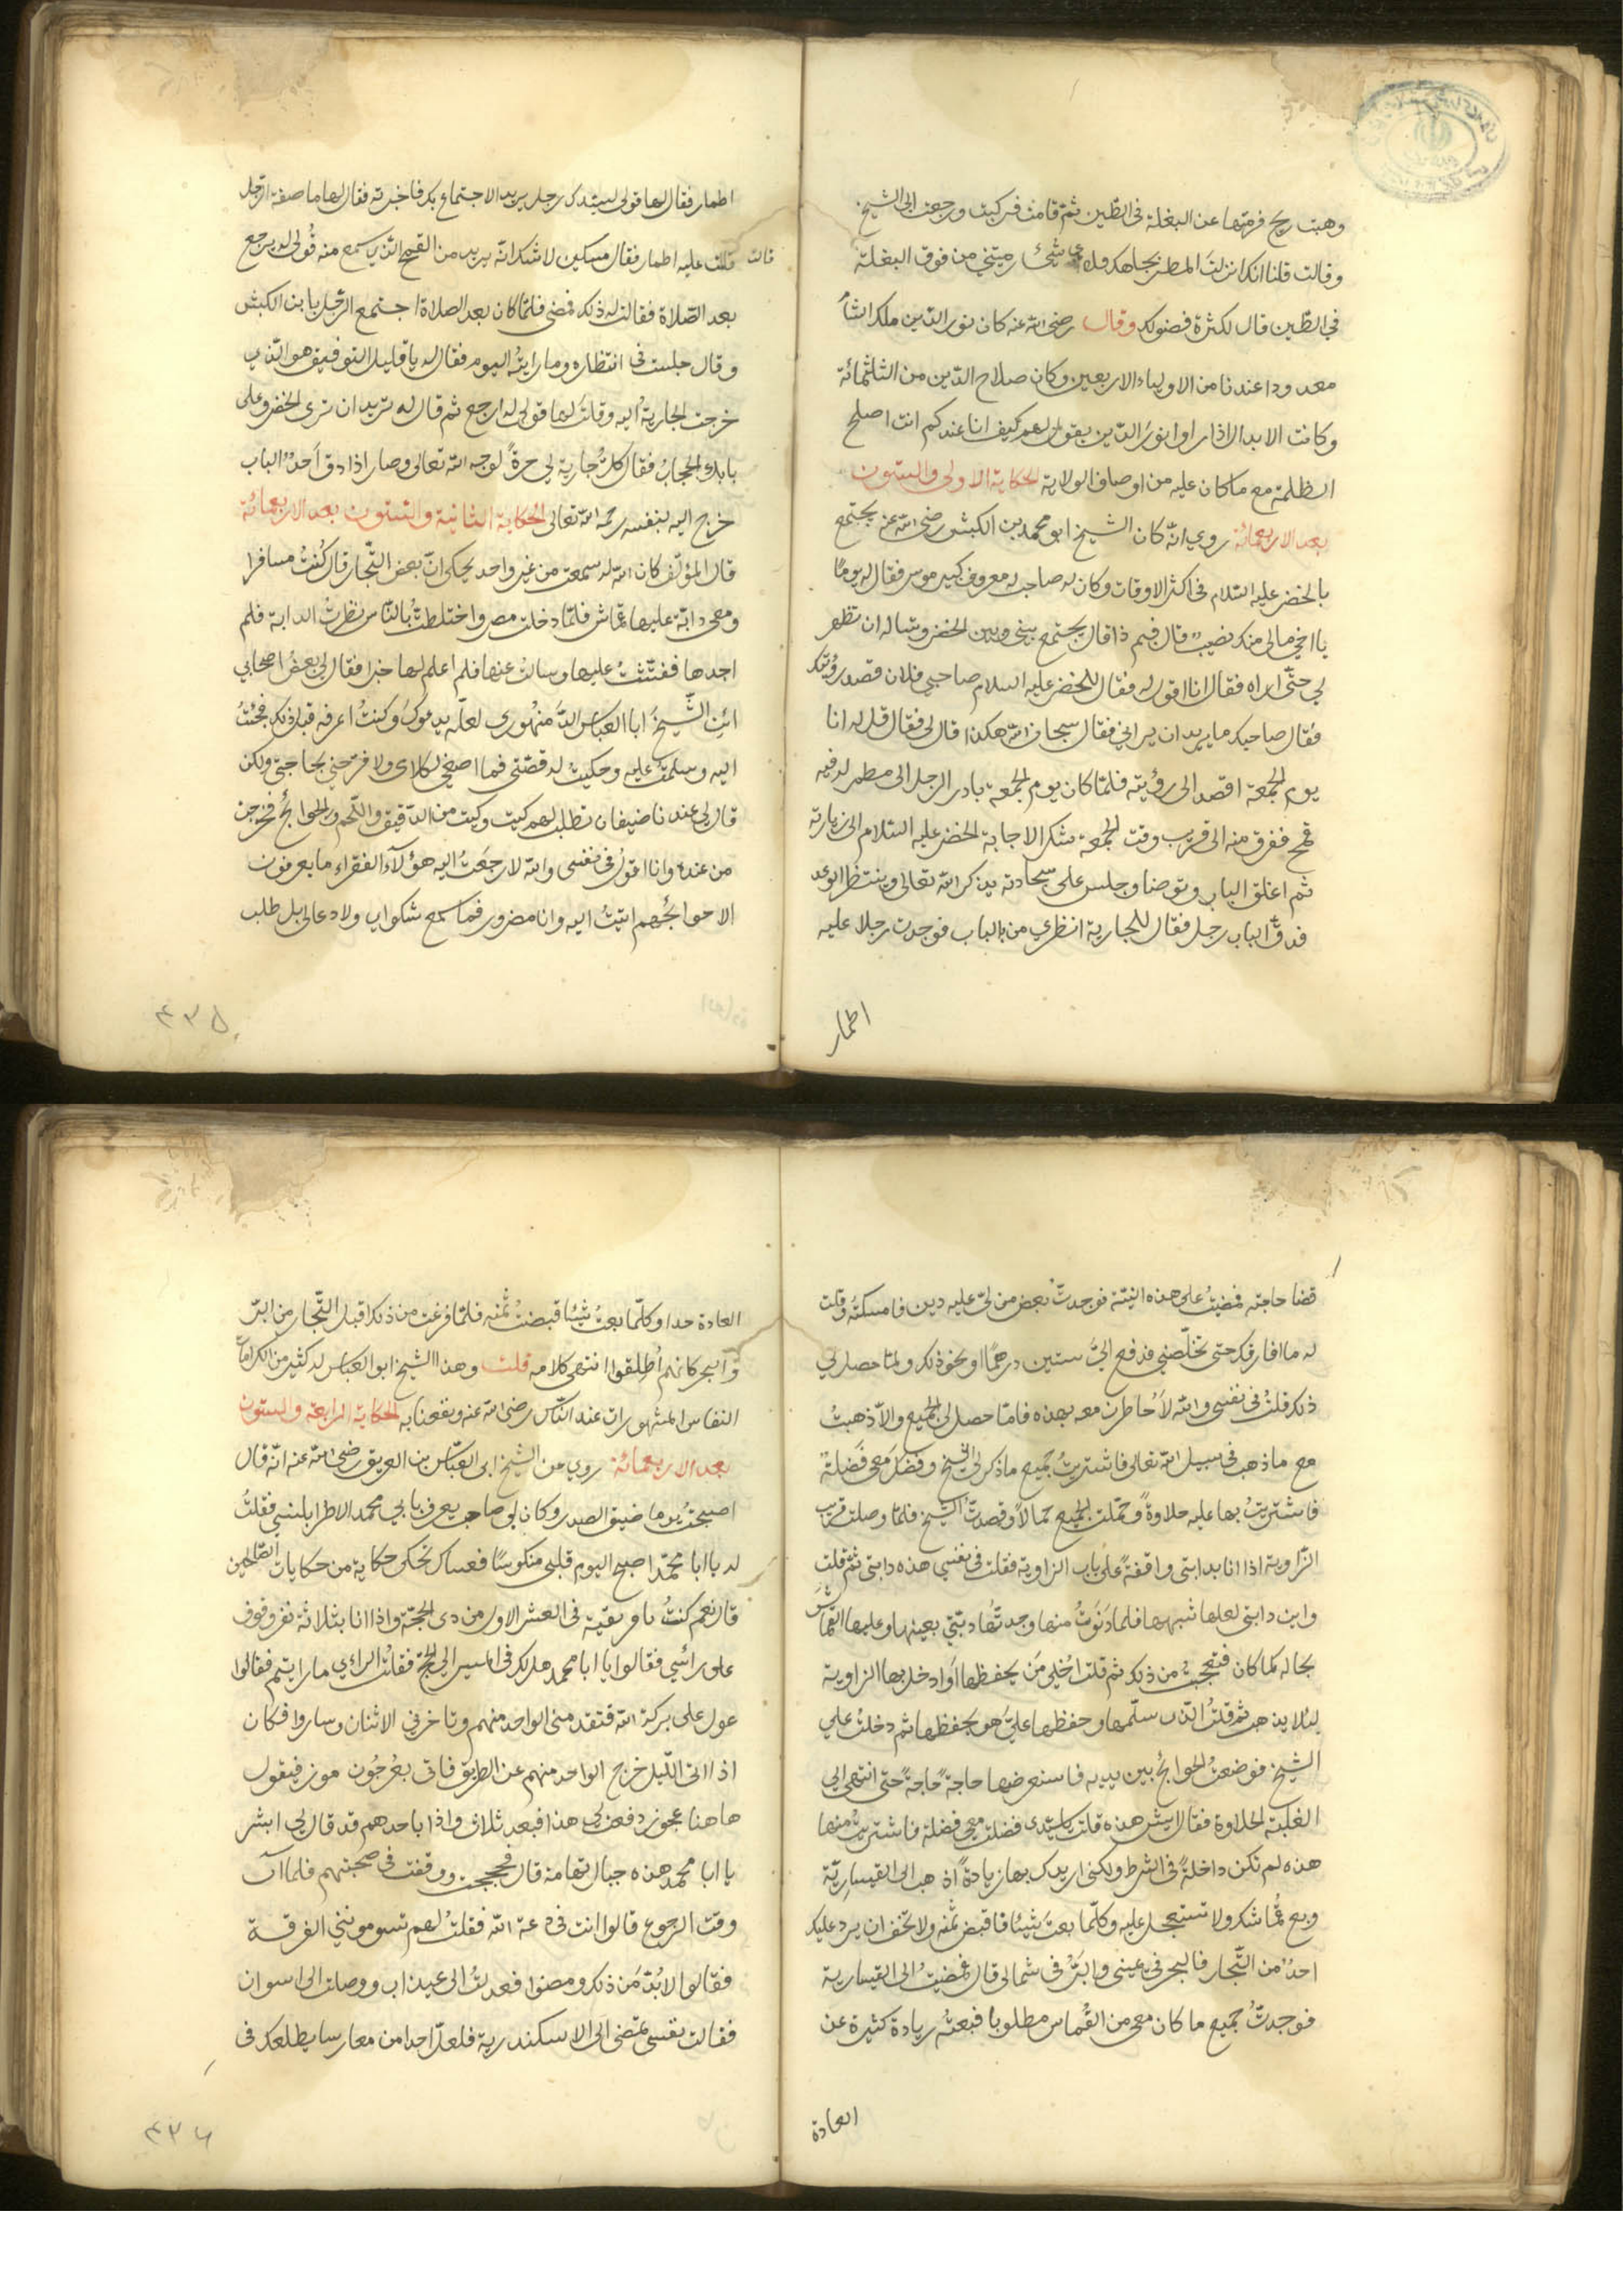 وهبت ريح فرمتها عن البغلة في الطين ثم قامت فركبت ورجعت الى الشيخ
وقالت قلنا انك انزلت المطر بجاهك فلاى شئ رميتني من فوق البغلة
في الطين قال لكثرة فضولك وقال رضى الله عنه كان نور الدين ملك الشام
معدودا عندنا من الاولياء الاربعين وكان صلاح الدين من الثلثمائة
وكانت الابدال اذا راوا نور الدين يقول لهم كيف انا عندكم انت اصلح
الظلمة مع ما كان عليه من اوصاف الولاية الحكاية الاولى والستون
بعد الاربعمائة روي انّه كان الشيخ ابو محمد بن الكبش رضى الله عنه يجتمع
بالخضر عليه السلام في اكثر الاوقات وكان له صاحب له معروف كبير موسر فقال له يومًا
يا اخي مالي منك نصيب قال فيم ذا قال يجتمع بيني وبين الخضر وتساله ان يظهر
لي حتّى اراه فقال انا اقول له فقال للخضر عليه السلام صاحبي فلان قصد رؤيتك
فقال صاحبك ما يريد ان يراني فقال سبحان الله هكذا قال لي فقال قل له انا
يوم الجمعة اقصد الى رؤيته فلمّا كان يوم الجمعة بادر الرجل الى مطمر له فيه
قمح ففرق منه الى قريب وقت الجمعة شكر الاجابة الخضر عليه السلام الى زيارته
ثم اغلق الباب وتوضا وجلس على سجادته يذكر الله تعالى وينتظر الوعد
فدقّ الباب رجل فقال للجارية انظري من بالباب فوجدت رجلا عليه
اطمار
اطمار فقال لها قولي لسيّدك رجل يريد الاجتماع بك فاخبرته فقال لها ما صفة الرّجل
قالت
قلت عليه اطمار فقال مسكين لا شك انّه يريد من القمح الذي سمع منه قولي له يرجع
بعد الصّلاة فقالت له ذلك فمضى فلمّا كان بعد الصلاة اجتمع الرّجل بابن الكبش
وقال جلست في انتظاره وما رايتُه اليوم فقال له يا قليل التوفيق هو الّذي
خرجت الجارية اليه وقلتَ لها قولي له ارجع ثم قال له تريد ان ترى الخضر وعلى
بابك الحجاب فقال كلّ جارية لي حرة لوجه الله تعالى وصار اذا دق احدٌ الباب
خرج اليه بنفسه رحمه الله تعالى الحكاية الثانية والستون بعد الاربعمائة
قال المؤلّف كان الله له سمعت من غير واحد يحكي انّ بعض التّجار قال كُنتُ مسافرا
ومعي دابّة عليها قماش فلمّا دخلت مصر واختلطتُ بالنّاس نظرت الدابة فلم
اجدها ففتّشت عليها وسالت عنها فلم اعلم لها خبرا فقال لي بعض اصحابي
ائت الشّيخ ابا العباس الدّمنهوري لعلّه يدعو لك وكنتُ اعرفه قبل ذلك فجئتُ
اليه وسلمتُ عليه وحكيتُ له قصّتي فما اصغى لكلامى ولا فرّحني بحاجتي ولكن
قال لي عندنا ضيفان نطلب لهم كيت وكيت من الدّقيق واللّحم والحوائج فخرجت
من عنده وانا اقولُ في نفسى والله لا رجعتُ اليه هؤلآء الفقراء ما يعرفون
الا حوائجُهم اتيتُ اليه وانا مضرور فما سمع شكواى ولا دعا لي بل طلب
٤٣٥
قضا حاجته فمضيتُ على هذه النيّة فوجدتُ بعض من لي عليه دين فامسكتُه وقلت
له ما افارقك حتى تخلّصني فدفع اليّ ستين درهمًا او نحو ذلك ولمّا حصل لي
ذلك قلتُ في نفسى والله لاُخاطرنّ معه بهذه فامّا حصل لي الجميع والّا ذهبتُ
مع ما ذهب في سبيل الله تعالى فاشتريتُ جميع ما ذكر لي الشيخ وفضَلَ معى فَضلةٌ
فاشتريتُ بها علبه حلاوةً وحمّلت الجميع حمالاً وقصدتُ الشيخ فلمّا وصلت قريب
الزّاوية اذا انا بدابتي واقفةً على باب الزاوية فقلت في نفسي هذه دابتي ثم قلت
واين دابتي لعلها شبهها فلما دَنَوْتُ منها وجدتُها دابّتي بعينها وعليها القماش
بحاله كما كان فتعجّبت من ذلك ثم قلت اُخلي مَن يحفظها او ادخل بها الزاوية
ليُلا يذهب ثم قلتُ الذى سلّمها وحفظها عليّ هو يحفظها ثم دخلتُ علي
الشيخ فوضعتُ الحوائج بين يديه فاستعرضها حاجة حاجةً حتى انتهى الى
العلبة الحلاوة فقال ايش هذه قلت يا سيّدى فضلت معي فضلة فاشتريتُ منها
هذه لم تكن داخلةً في الشرط ولكني ازيدك بها زيادةً اذهب الى القيساريّة
وبع قماشك ولا تستعجل عليه وكلّما بعتَ شيئًا فاقبض ثمنه ولا تخف ان يرد عليك
احدٌ من التّجار فالبحر في يميني والبَرّ في شمالي قال فمضيتُ الى القيسارية
فوجدتُ جميع ما كان معى من القُماس مطلوبا فبعتُه زيادة كثيرة عن
العادة
العادة جدا وكلّما بعتُ شيئًا قبضتُ ثمنه فلمّا فرغت من ذلك اقبل التّجار من البرّ
والبحر كانهم اُطلقوا انتهى كلامه قلت وهذا الشيخ ابو العباس له كثير من الكرامات
النفاس المشهورات عند الناس رضى الله عنه ونفعنا به الحكاية الرابعة والستون
بعد الاربعمائة روي من الشيخ ابى العبّاس بن العريق رضى الله عنه انّه قال
اصبحتُ يوما ضيق الصدر وكان لي صاحب يعرف بابي محمد الاطرابلسي فقلتُ
له يا ابا محمّد اصبح اليوم قلبي منكوسًا فعساك تحكي حكاية من حكايات الصّالحين
قال نعم كنتُ بافريقيّة في العشر الاول من ذى الحجّة واذا انا بثلاثة نفر وقوف
على رائسي فقالوا يا ابا محمد هل لك في المسير الى الحج فقلت الرائي ما رايتم فقالوا
عول على بركة الله فتقدمنى الواحد منهم وتاخر بي الاثنان وساروا فكان
اذا اتى اللّيل خرج الواحد منهم عن الطريق فاتى بعُرجُون موز فيقول
هاهنا عجوز دفعت لي هذا فبعد ثلاث واذا باحدهم قد قال لي ابشر
يا ابا محمد هذه جبال تهامة قال فحججت ووقفت في صحبتهم فلما آن
وقت الرجوع قالوا انت في دعة الله فقلتُ لهم تسوموننى الفرقة
فقالوا لا بُدّ مَن ذلك ومضوا فعدتُ الى عيذاب ووصلت الى اسوان
فقالت نفسى تمضى الى الاسكندرية فلعلّ احدا من معارسا يطلعك في
٤٣٦